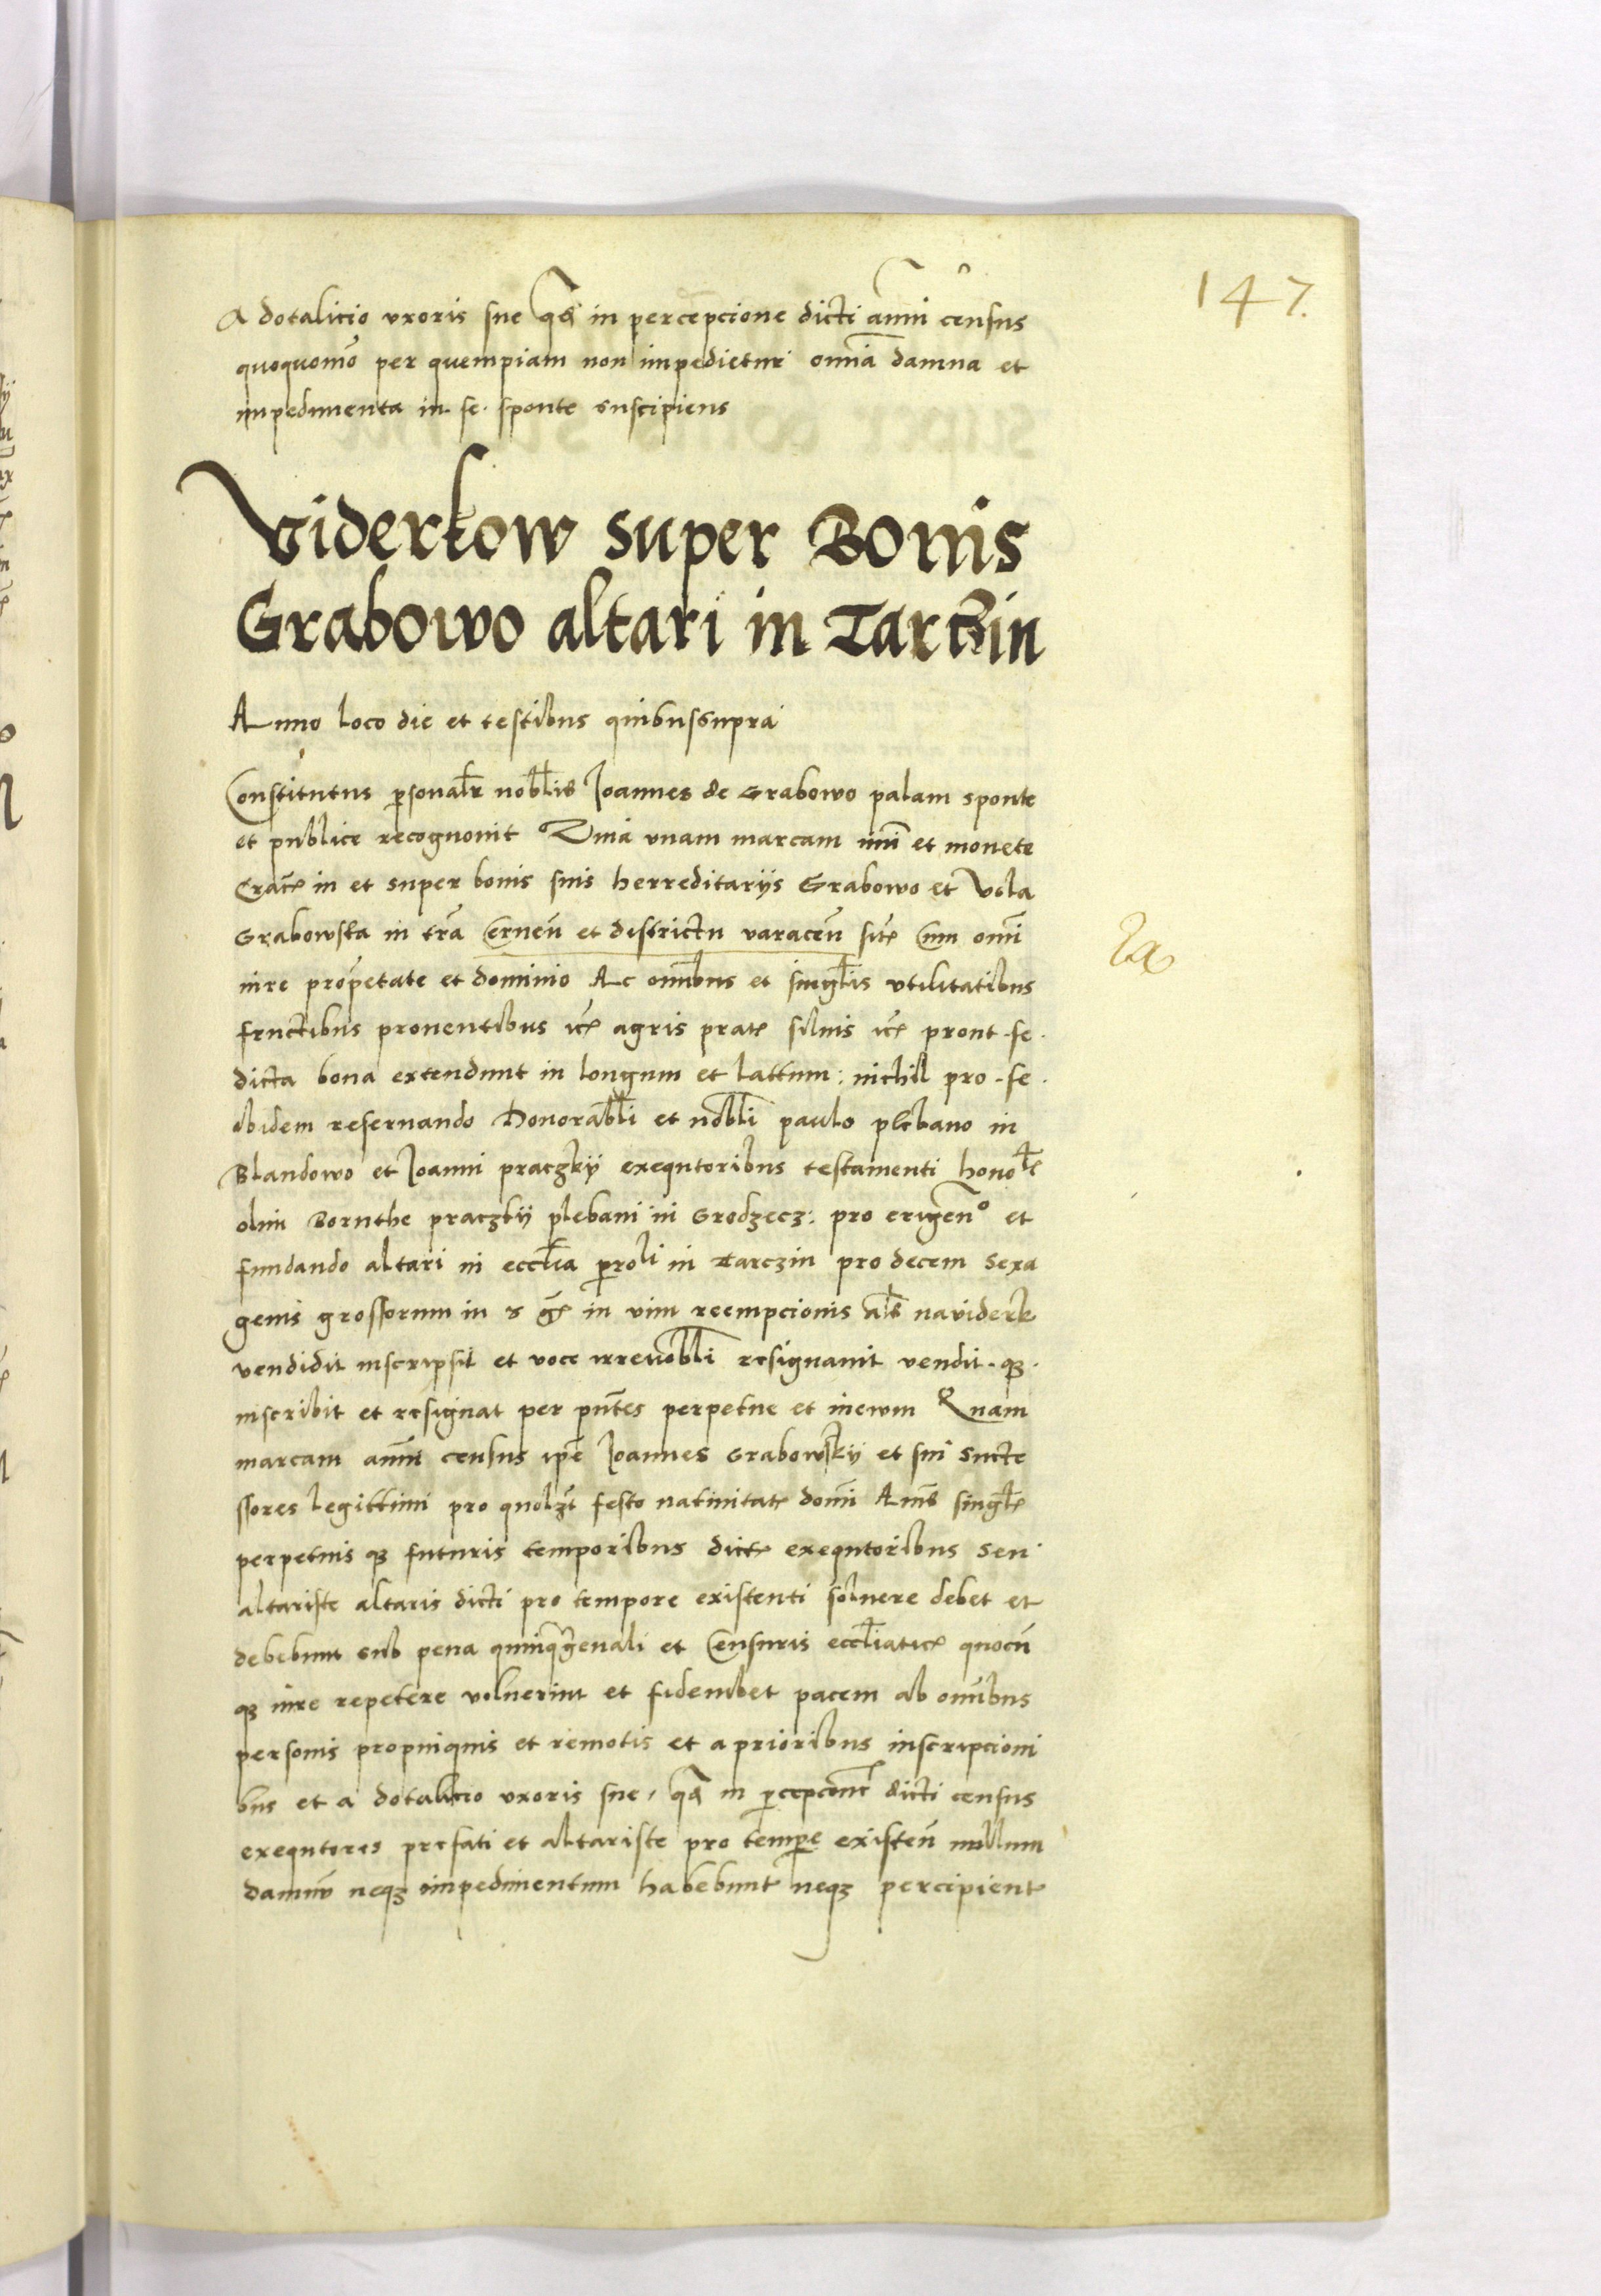 147.
A dotalicio vxoris sue q̃d in percepcione dicti annui census
quoquomo͂ per quempiam non impedietur omnia͂ damna et
impedimenta in se sponte suscipiens
Viderkow super Bonis
Grabowo altari in Tarczin
Anno loco die et testibus quibussupra
Constitutus p̱sonal̃r nobl̃is Joannes de Grabowo palam sponte
et publice recognouit Quia vnam marcam nu͂i et monete
in et super bonis suis herreditariis Grabowo et Vola
Grabowska in tr̃a Cernen̄ et districtu varacen̄ sit̃ Cum omĩ
iure prop̱etate et dominio Ac omĩbus et singl̃is vtilitatibus
fructibus prouentibus ic̃ agris prat̃ siluis ic̃ pront se
dicta bona extendunt in longum et lattum : nichil pro se
ibidem reseruando Honorabl̃i et nobl̃i paulo plebano in
Blandowo et Joanni praczky exequtoribus testamenti hono
olim Bornthe praczky plebani in Grodzecz : pro erigen͂o et
fundando altari in eccl̃ia p̱roli in Tarczin pro decem sexa
genis grossorum in s g̃ in vim reempcionis al̃s naviderk
vendidit inscripsit et voce irreuobl̃i resignauit vendit qꝫ
inscribit et resignat per pñtes perpetue et ineuum Quam
marcam annui census ip̃e Joannes Grabowsky et sui succe
ssores legittimi pro quolꝫt festo natiuitat̃ domĩ Annis singl̃
perpetuis qꝫ futuris temporibus dict̃ exequtoribus seu
altariste altaris dicti pro tempore existenti soluere debet et
debebunt sub pena quinq̃genali et Censuris eccl̃iatic̃ quocu͂
qꝫ iure repetere voluerint et fidembet pacem ab omnibus
personis propinquis et remotis et a prioribus inscripcioni
bus et a dotalicio vxoris sue , q̃d in p̱cepcone dicti census
exequtores prefati et altariste pro temp̱e existen̄ nullum
damnu͂ neqꝫ impedimentum habebunt neqꝫ percipient